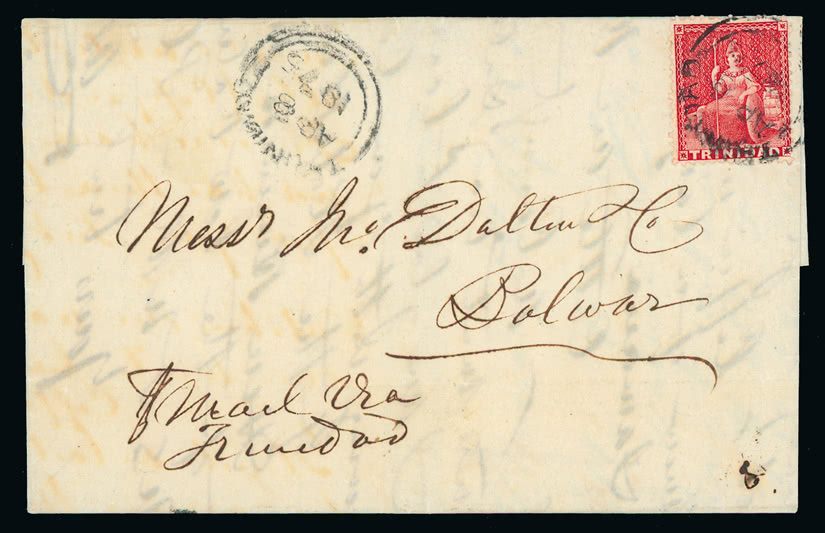 TRINIDAD
AP 8
19 75
TRINIDAD
Messrs Jno. Dalton & Co
Bolivar
p Mail Via
Trinidad
8.